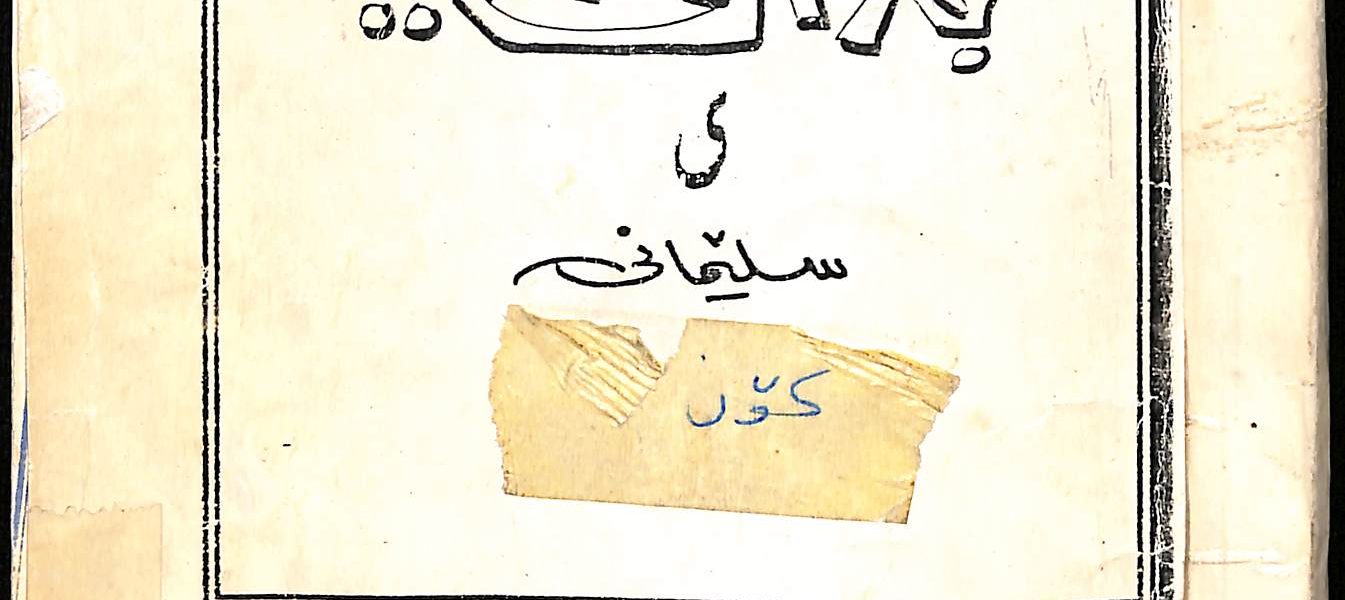 ی
سلێمانی
کۆن